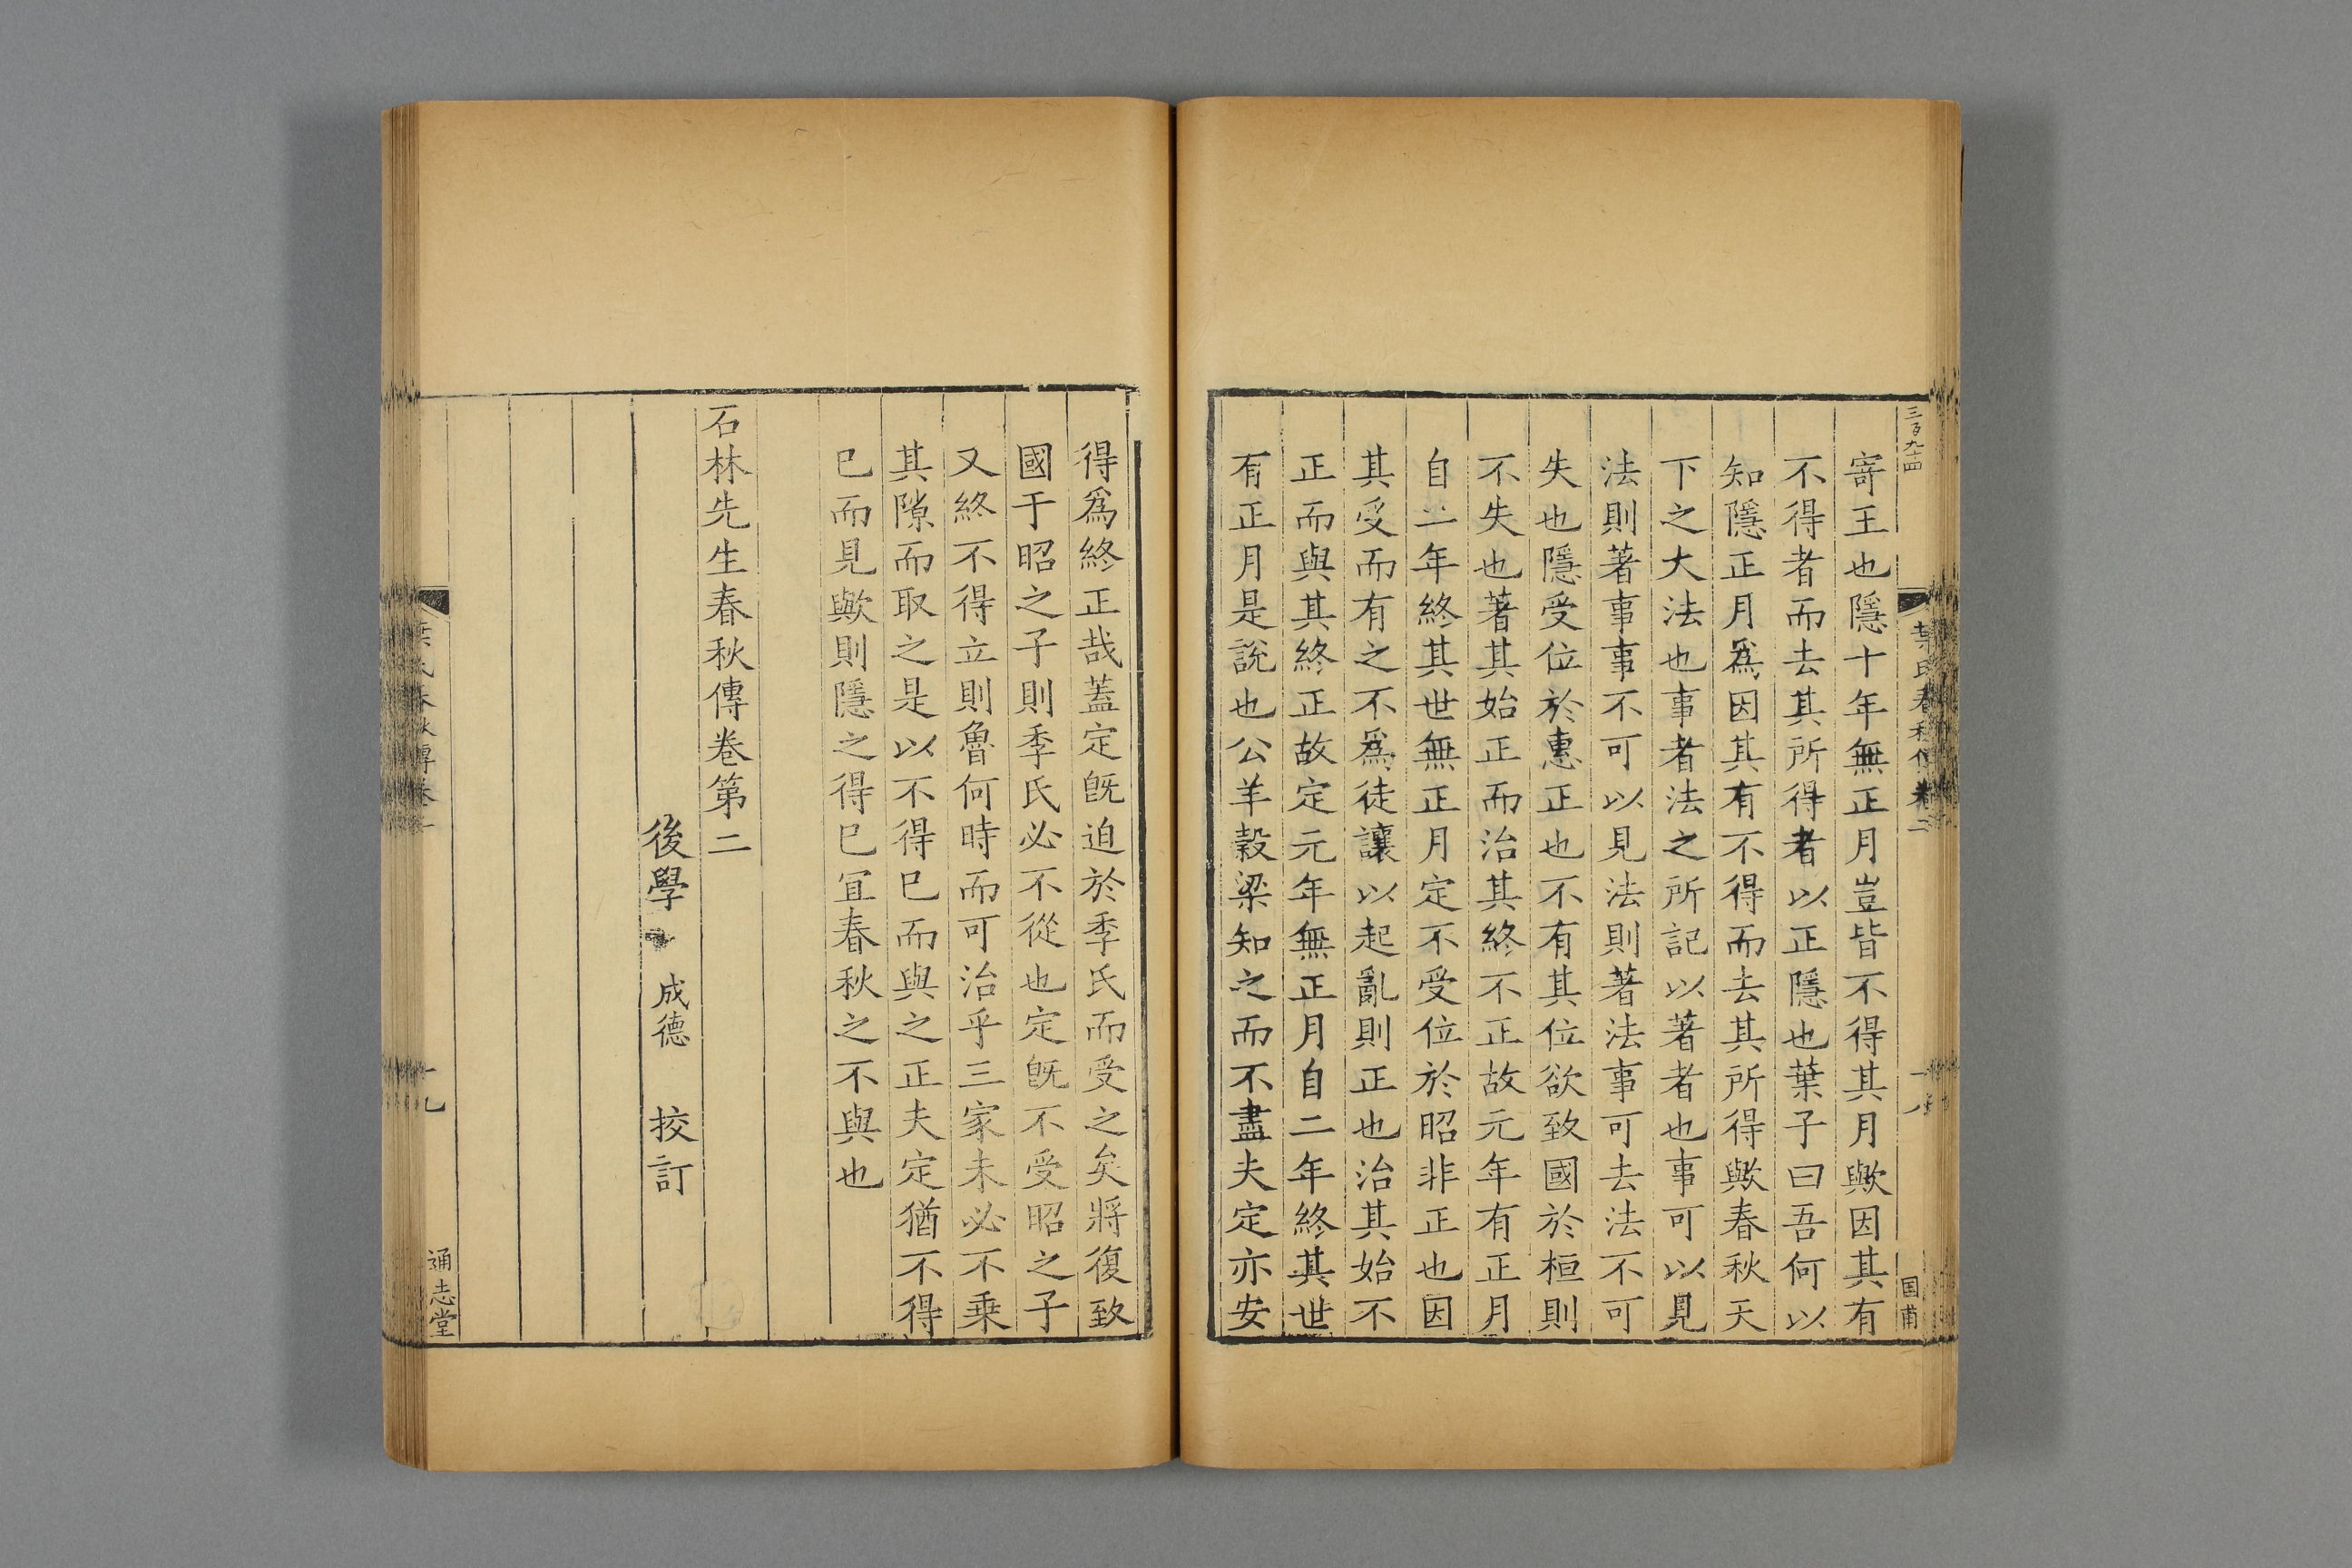 三百九十四
葉氏春秋傳卷二
國甫
寄王也隱十年無正月豈皆不得其月歟因其有
不得者而去其所得者以正隱也葉子曰吾何以
知隱正月爲因其有不得而去其所得歟春秋天
下之大法也事者法之所記以著者也事可以見
法則著事事不可以見法則著法事可去法不可
失也隱受位於惠正也不有其位欲致國於桓則
不失也著其始正而治其終不正故元年有正月
自二年終其世無正月定不受位於昭非正也因
其受而有之不爲徒讓以起亂則正也治其始不
正而與其終正故定元年無正月自二年終其世
有正月是說也公羊穀梁知之而不盡夫定亦安
得爲終正哉蓋定旣迫於季氏而受之矣將復致
國于昭之子則季氏必不從也定旣不受昭之子
又終不得立則魯何時而可治乎三家未必不乗
其隙而取之是以不得巳而與之正夫定猶不得
巳而見歟則隱之得巳宜春秋之不與也
石林先生春秋傳卷第二
後學 成德 挍訂
通志堂